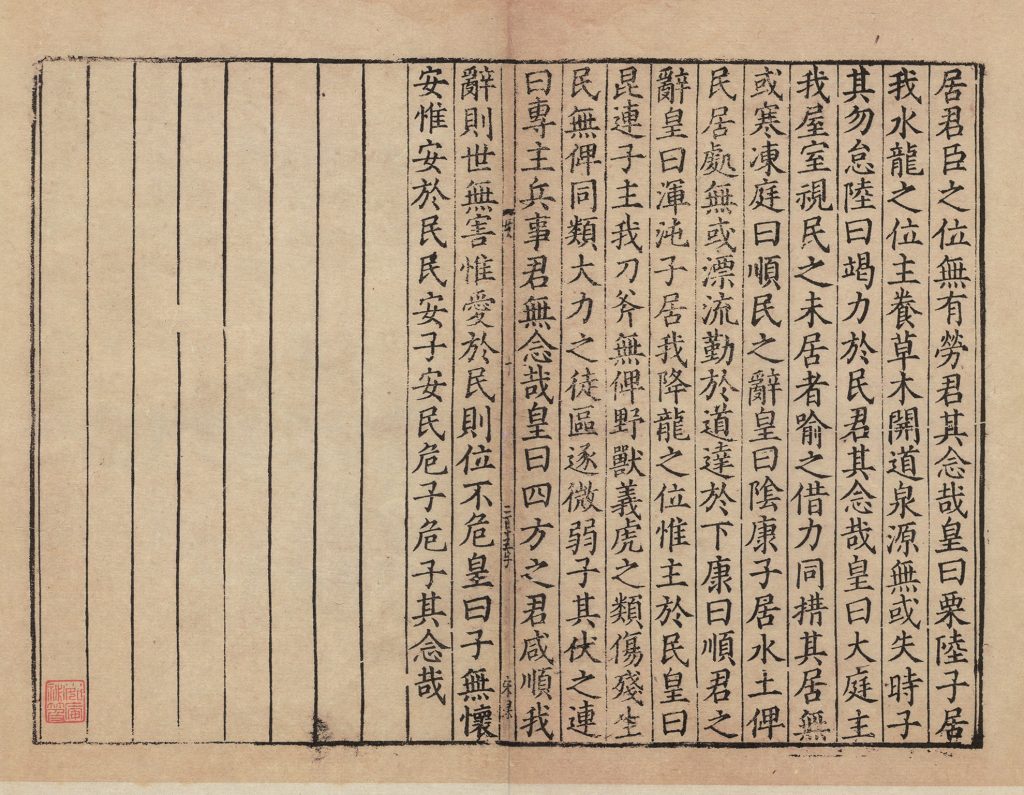 居君臣之位無有勞君其念哉皇曰栗陸子居
我水龍之位主養草木開道泉源無或失時子
其勿怠陸曰竭力於民君其念哉皇曰大庭主
我屋室視民之未居者喻之借力同措其居無
或寒凍庭曰順民之辭皇曰陰康子居水土俾
民居處無或漂流勤於道達於下康曰順君之
辭皇曰渾沌子居我降龍之位惟主於民皇曰
昆連子主我刀斧無俾野獸義虎之類傷殘生
民無俾同類大力之徒區逐微弱子其伏之連
曰專主兵事君無念哉皇曰四方之君咸順我
辭則世無害惟愛於民則位不危皇曰子無懷
安惟安於民民安子安民危子危子其念哉